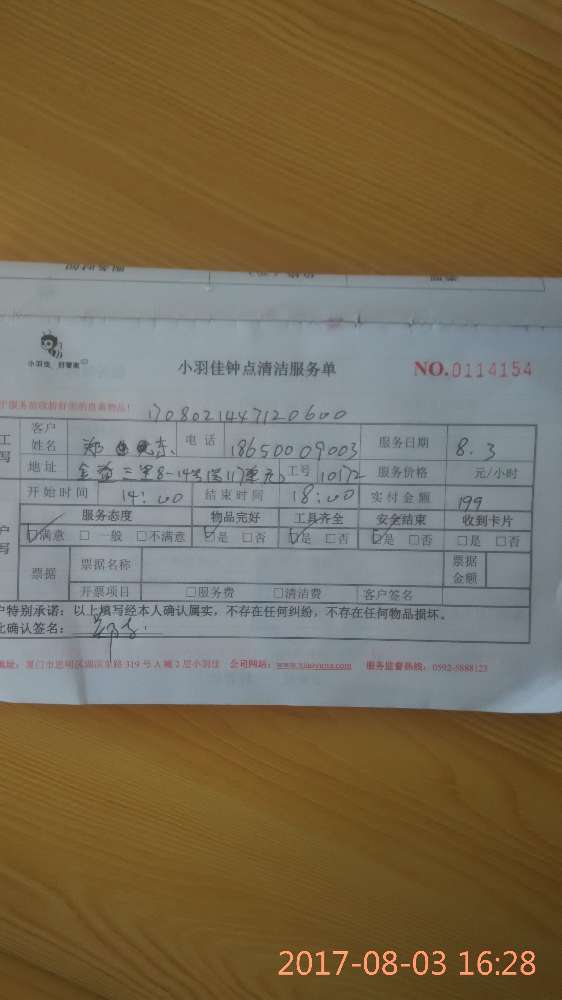 小羽佳 好管家
小羽佳钟点清洁服务单
NO.0114154
客户姓名 郑 东 电话 18650009003 服务日期 8.3
地址 金益三里8-14号 工号 10172 服务价格 元/小时
开始时间 14:00 结束时间 18:00 实付金额 199
服务态度 物品完好 工具齐全 安全结束 收到卡片
☑满意 □一般 □不满意 ☑是 □否 ☑是 □否 ☑是 □否 □是 □否
票据 票据名称 票据金额
开票项目 □服务费 □清洁费 客户签名
户特别承诺:以上填写经本人确认属实,不存在任何纠纷,不存在任何物品损坏。
此确认签名:
地址:厦门市思明区湖滨东路319号A幢2层小羽佳 公司网站:www.xiaoyujia.com 服务监督热线:0592-5888123
2017-08-03 16:28